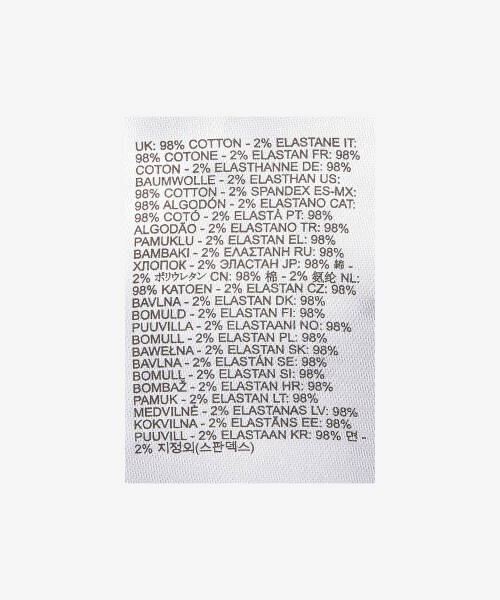 UK: 98% COTTON - 2% ELASTANE IT:
98% COTONE - 2% ELASTAN FR: 98%
COTON - 2% ELASTHANNE DE: 98%
BAUMWOLLE - 2% ELASTHAN US:
98% COTTON - 2% SPANDEX ES-MX:
98% ALGODÓN - 2% ELASTANO CAT:
98% COTÓ - 2% ELASTÀ PT: 98%
ALGODÃO - 2% ELASTANO TR: 98%
PAMUKLU - 2% ELASTAN EL: 98%
ΒΑΜΒΑΚΙ - 2% ΕΛΑΣΤΑΝΗ RU: 98%
ХЛОПОК - 2% ЭЛАСТАН JP: 98% 綿 -
2% ポリウレタン CN: 98% 棉 - 2% 氨纶 NL:
98% KATOEN - 2% ELASTAN CZ: 98%
BAVLNA - 2% ELASTAN DK: 98%
BOMULD - 2% ELASTAN FI: 98%
PUUVILLA - 2% ELASTAANI NO: 98%
BOMULL - 2% ELASTAN PL: 98%
BAWEŁNA - 2% ELASTAN SK: 98%
BAVLNA - 2% ELASTÁN SE: 98%
BOMULL - 2% ELASTAN SI: 98%
BOMBAŽ - 2% ELASTAN HR: 98%
PAMUK - 2% ELASTAN LT: 98%
MEDVILNĖ - 2% ELASTANAS LV: 98%
KOKVILNA - 2% ELASTĀNS EE: 98%
PUUVILL - 2% ELASTAAN KR: 98% 면 -
2% 지정외(스판덱스)